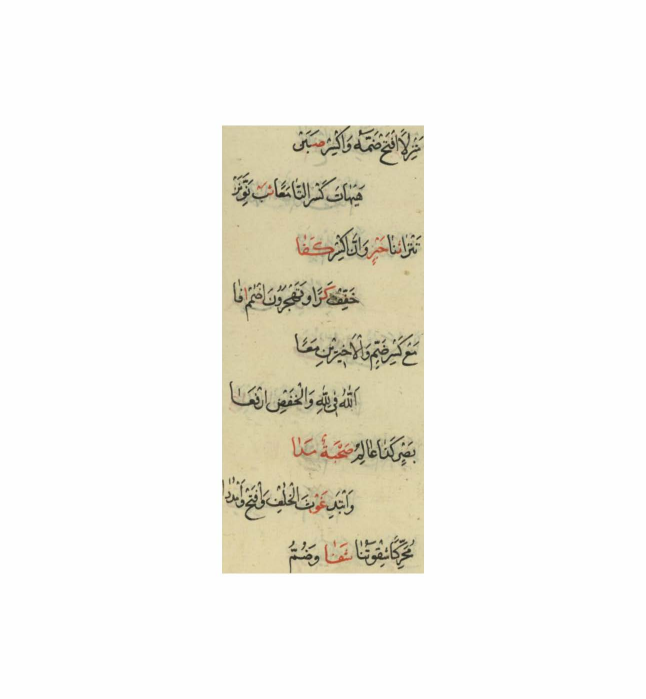 مَنْزِلًا افْتَحْ ضَمَّهُ وَاكْسِرْ صَبَنْ
هَيْهَاتَ كَسْرُ التَّا مَعًا ثِبْ نَوِّنَنْ
تَتْرَا ثَنَا حَبْرٍ وَأَنَّ اكْسِرْ كَفَا
خَفِّفْ كَرًا وَتَهْجُرُونَ اضْمُمْ افَا
مَعْ كَسْرِ ضَمٍّ وَالْأَخِيرَيْنِ مَعَا
اَللّٰهُ فِي لِلّٰهِ وَالْخَفْضِ ارْفَعَا
بَصْرٍ كَذَا عَالِمُ صُحْبَةٌ مَدَا
وَابْتَدِ غَوْثَ الْخُلْفِ وَافْتَحْ وَامْدُدَا
مُحَرِّكًا شِقْوَتُنَا شَفَا وَضُمّ